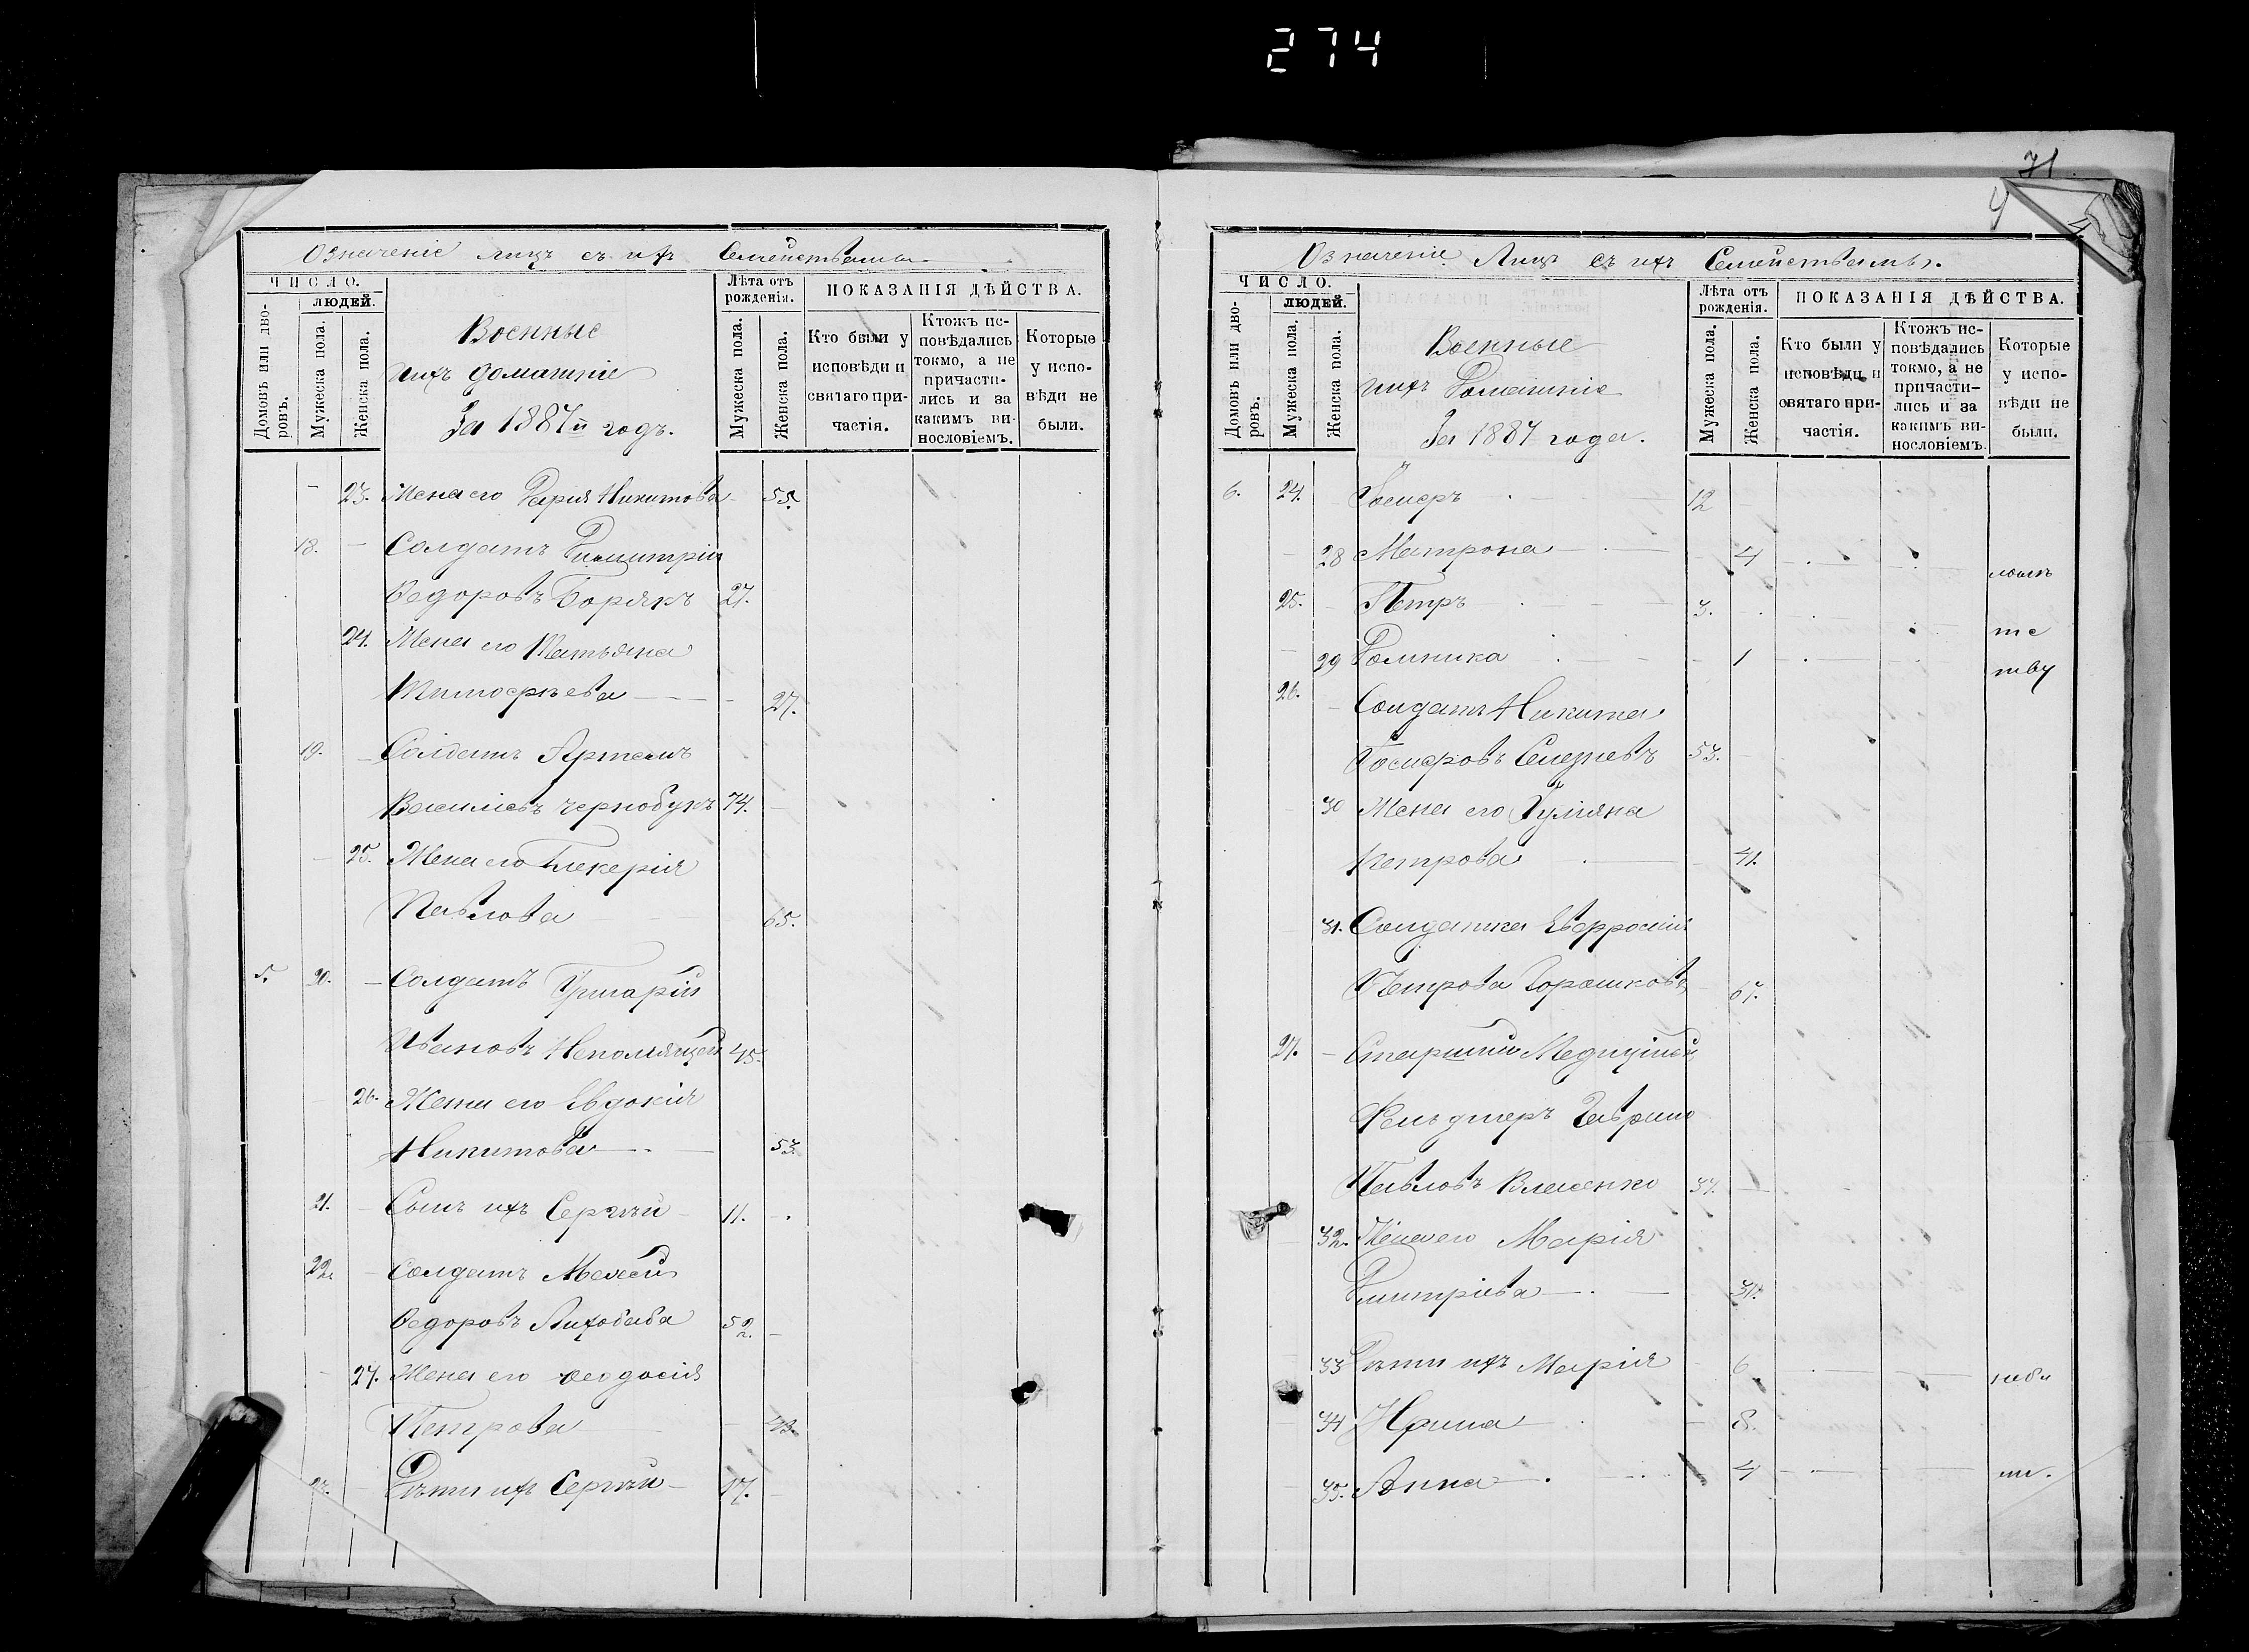 274
71
Означеніе лицъ съ ихъ Семействами
ЧИСЛО.
Домовъ или дворовъ.
ЛЮДЕЙ.
Мужеска пола.
Женска пола.
Военные
ихъ домашніе
За 1887й годъ.
Лѣта отъ рожденія.
Мужеска пола.
Женска пола.
ПОКАЗАНІЯ ДѢЙСТВА.
Кто были у исповѣди и святаго причастія.
Ктожъ исповѣдались токмо, а не причастились и за какимъ винословіемъ.
Которые у исповѣди не были.
23. Жена его Дарія Никитова 55.
18. Солдатъ Димитрій
Федоровъ Борякъ 27.
24. Жена его Татьяна
Тимофѣева 27.
19. Солдатъ Артемъ
Василіевъ Чернобукъ 74.
25. Жена его Гликерія
Павлова 65.
5. 20. Солдатъ Григорій
Ивановъ Непомящей 45.
26. Жена его Евдокія
Никитова 53.
21. Сынъ ихъ Сергѣй 11.
22. Солдатъ Мелетій
Федоровъ Лихобаба 52.
27. Жена его Феодосія
Петрова 43.
23. Дѣти ихъ Сергѣй 17.
Означеніе Лицъ съ ихъ Семействамъ.
ЧИСЛО.
Домовъ или дворовъ.
ЛЮДЕЙ.
Мужеска пола.
Женска пола.
Военные
ихъ Домашніе
За 1887 года.
Лѣта отъ рожденія.
Мужеска пола.
Женска пола.
ПОКАЗАНІЯ ДѢЙСТВА.
Кто были у исповѣди и святаго причастія.
Ктожъ исповѣдались токмо, а не причастились и за какимъ винословіемъ.
Которые у исповѣди не были.
6. 24. 12
28 Матрона 4
25. Петръ 3.
29 Домника 1
26. Солдатъ Никита
Селезневъ 53.
30 Жена его Іуліяна
Петрова 41.
31. Солдатка Евфросинія
Петрова Горошкова 67.
27. Старшій Медиціной
Фельдшеръ Гаврило
Павловъ Власенко 37.
32. Жена его Марія
Димитріева 31.
33 Дѣти ихъ Марія 6
34 Ирина 8.
35. Анна 4